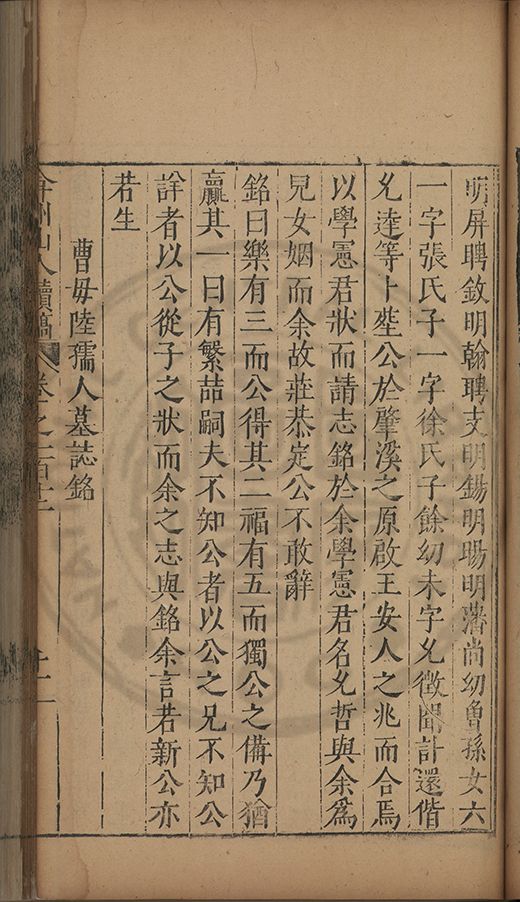 明屏聘斂明翰聘支明錫明暘明藩尚幼曾孫女六
一字張氏子一字徐氏子餘幼未字允徵聞訃還偕
允達等卜塟公於肇溪之原啟王安人之兆而合焉
以學憲君狀而請志銘於余學憲君名允哲與余爲
兒女姻而余故莊恭定公不敢辭
銘曰樂有三而公得其二福有五而獨公之備乃猶
羸其一曰有繁喆嗣夫不知公者以公之兄不知公
詳者以公從子之狀而余之志與銘余言若新公亦
若生
曹毋陸孺人墓誌銘
弇州山人續稿 卷之一百十二 十二